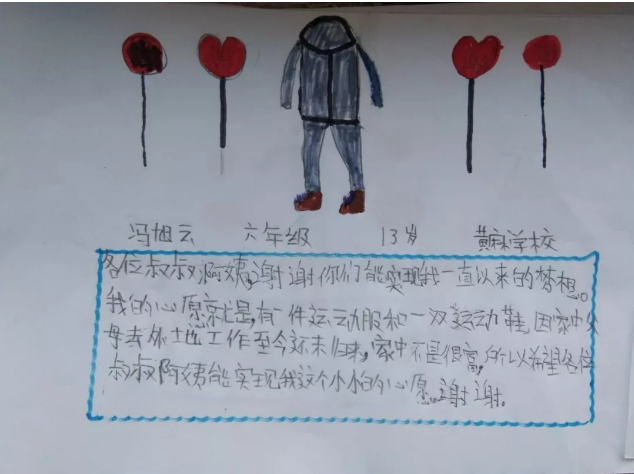 冯旭云 六年级 13岁 黄麻学校
各位叔叔啊姨,谢谢你们能实现我一直以来的梦想。
我的心愿就是,有一件运动服和一双运动鞋,因家中父
母去外地工作至今还未归来,家中不是很富,所以希望各位
叔叔阿姨能实现我这个小小的心愿。谢谢。